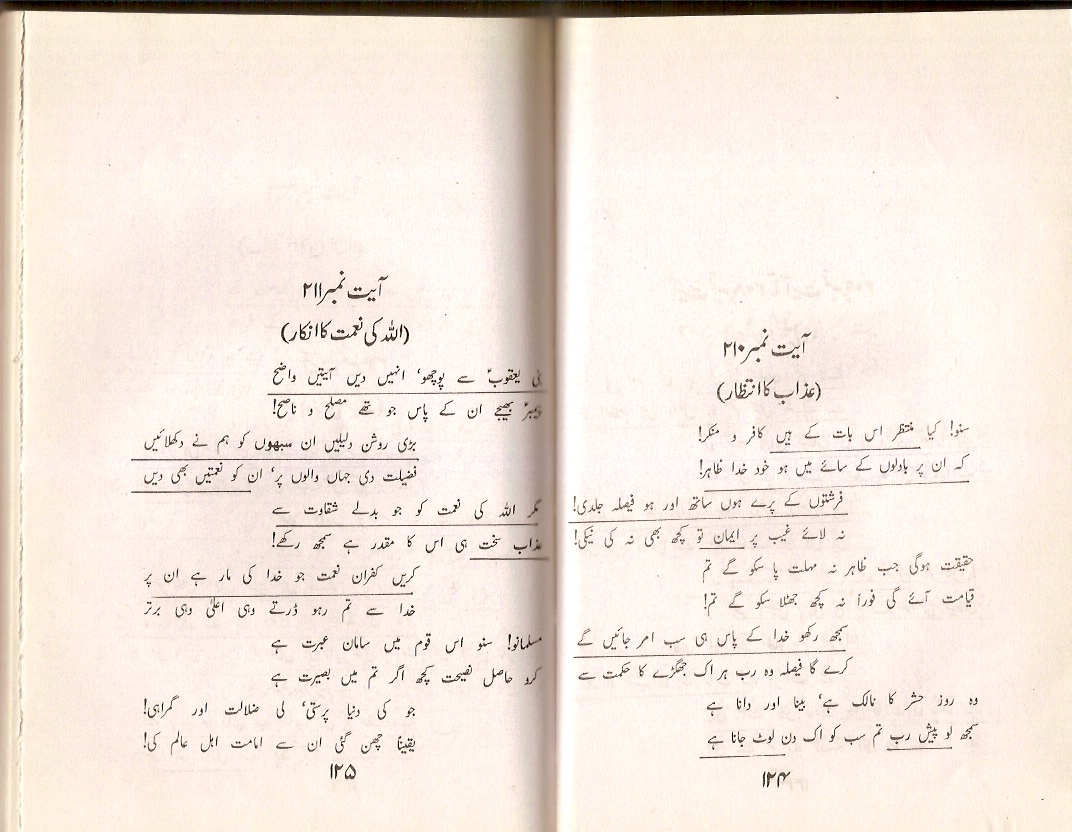 آیت نمبر ۲۱۰
(عذاب کا انتظار)
سنو! کیا منتظر اس بات کے ہیں کافر و منکر!
کہ ان پر بادلوں کے سائے میں ہو خود خدا ظاہر!
فرشتوں کے پرے ہوں ساتھ اور ہو فیصلہ جلدی!
نہ لائے غیب پر ایمان تو کچھ بھی نہ کی نیکی!
حقیقت ہوگی جب ظاہر نہ مہلت پا سکو گے تم
قیامت آئے گی فوراً نہ کچھ جھٹلا سکو گے تم!
سمجھ رکھو خدا کے پاس ہی سب امر جائیں گے
کرے گا فیصلہ وہ رب ہر اک جھگڑے کا حکمت سے
وہ روز حشر کا مالک ہے‘ بینا اور دانا ہے
سمجھ لو پیش رب تم سب کو اک دن لوٹ جانا ہے
۱۲۴
آیت نمبر ۲۱۱
(اللہ کی نعمت کا انکار)
بنی یعقوبؑ سے پوچھو‘ انہیں دیں آیتیں واضح
پیمبرؑ بھیجے ان کے پاس جو تھے مصلح و ناصح!
بڑی روشن دلیلیں ان سبھوں کو ہم نے دکھلائیں
فضیلت دی جہاں والوں پر‘ ان کو نعمتیں بھی دیں
مگر اللہ کی نعمت کو جو بدلے شقاوت سے
عذاب سخت ہی اس کا مقدر ہے سمجھ رکھے!
کریں کفران نعمت جو خدا کی مار ہے ان پر
خدا سے تم رہو ڈرتے وہی اعلیٰ وہی برتر
مسلمانو! سنو اس قوم میں سامان عبرت ہے
کرو حاصل نصیحت کچھ اگر تم میں بصیرت ہے
جو کی دنیا پرستی‘ لی ضلالت اور گمراہی!
یقیناً چھن گئی ان سے امامت اہل عالم کی!
۱۲۵